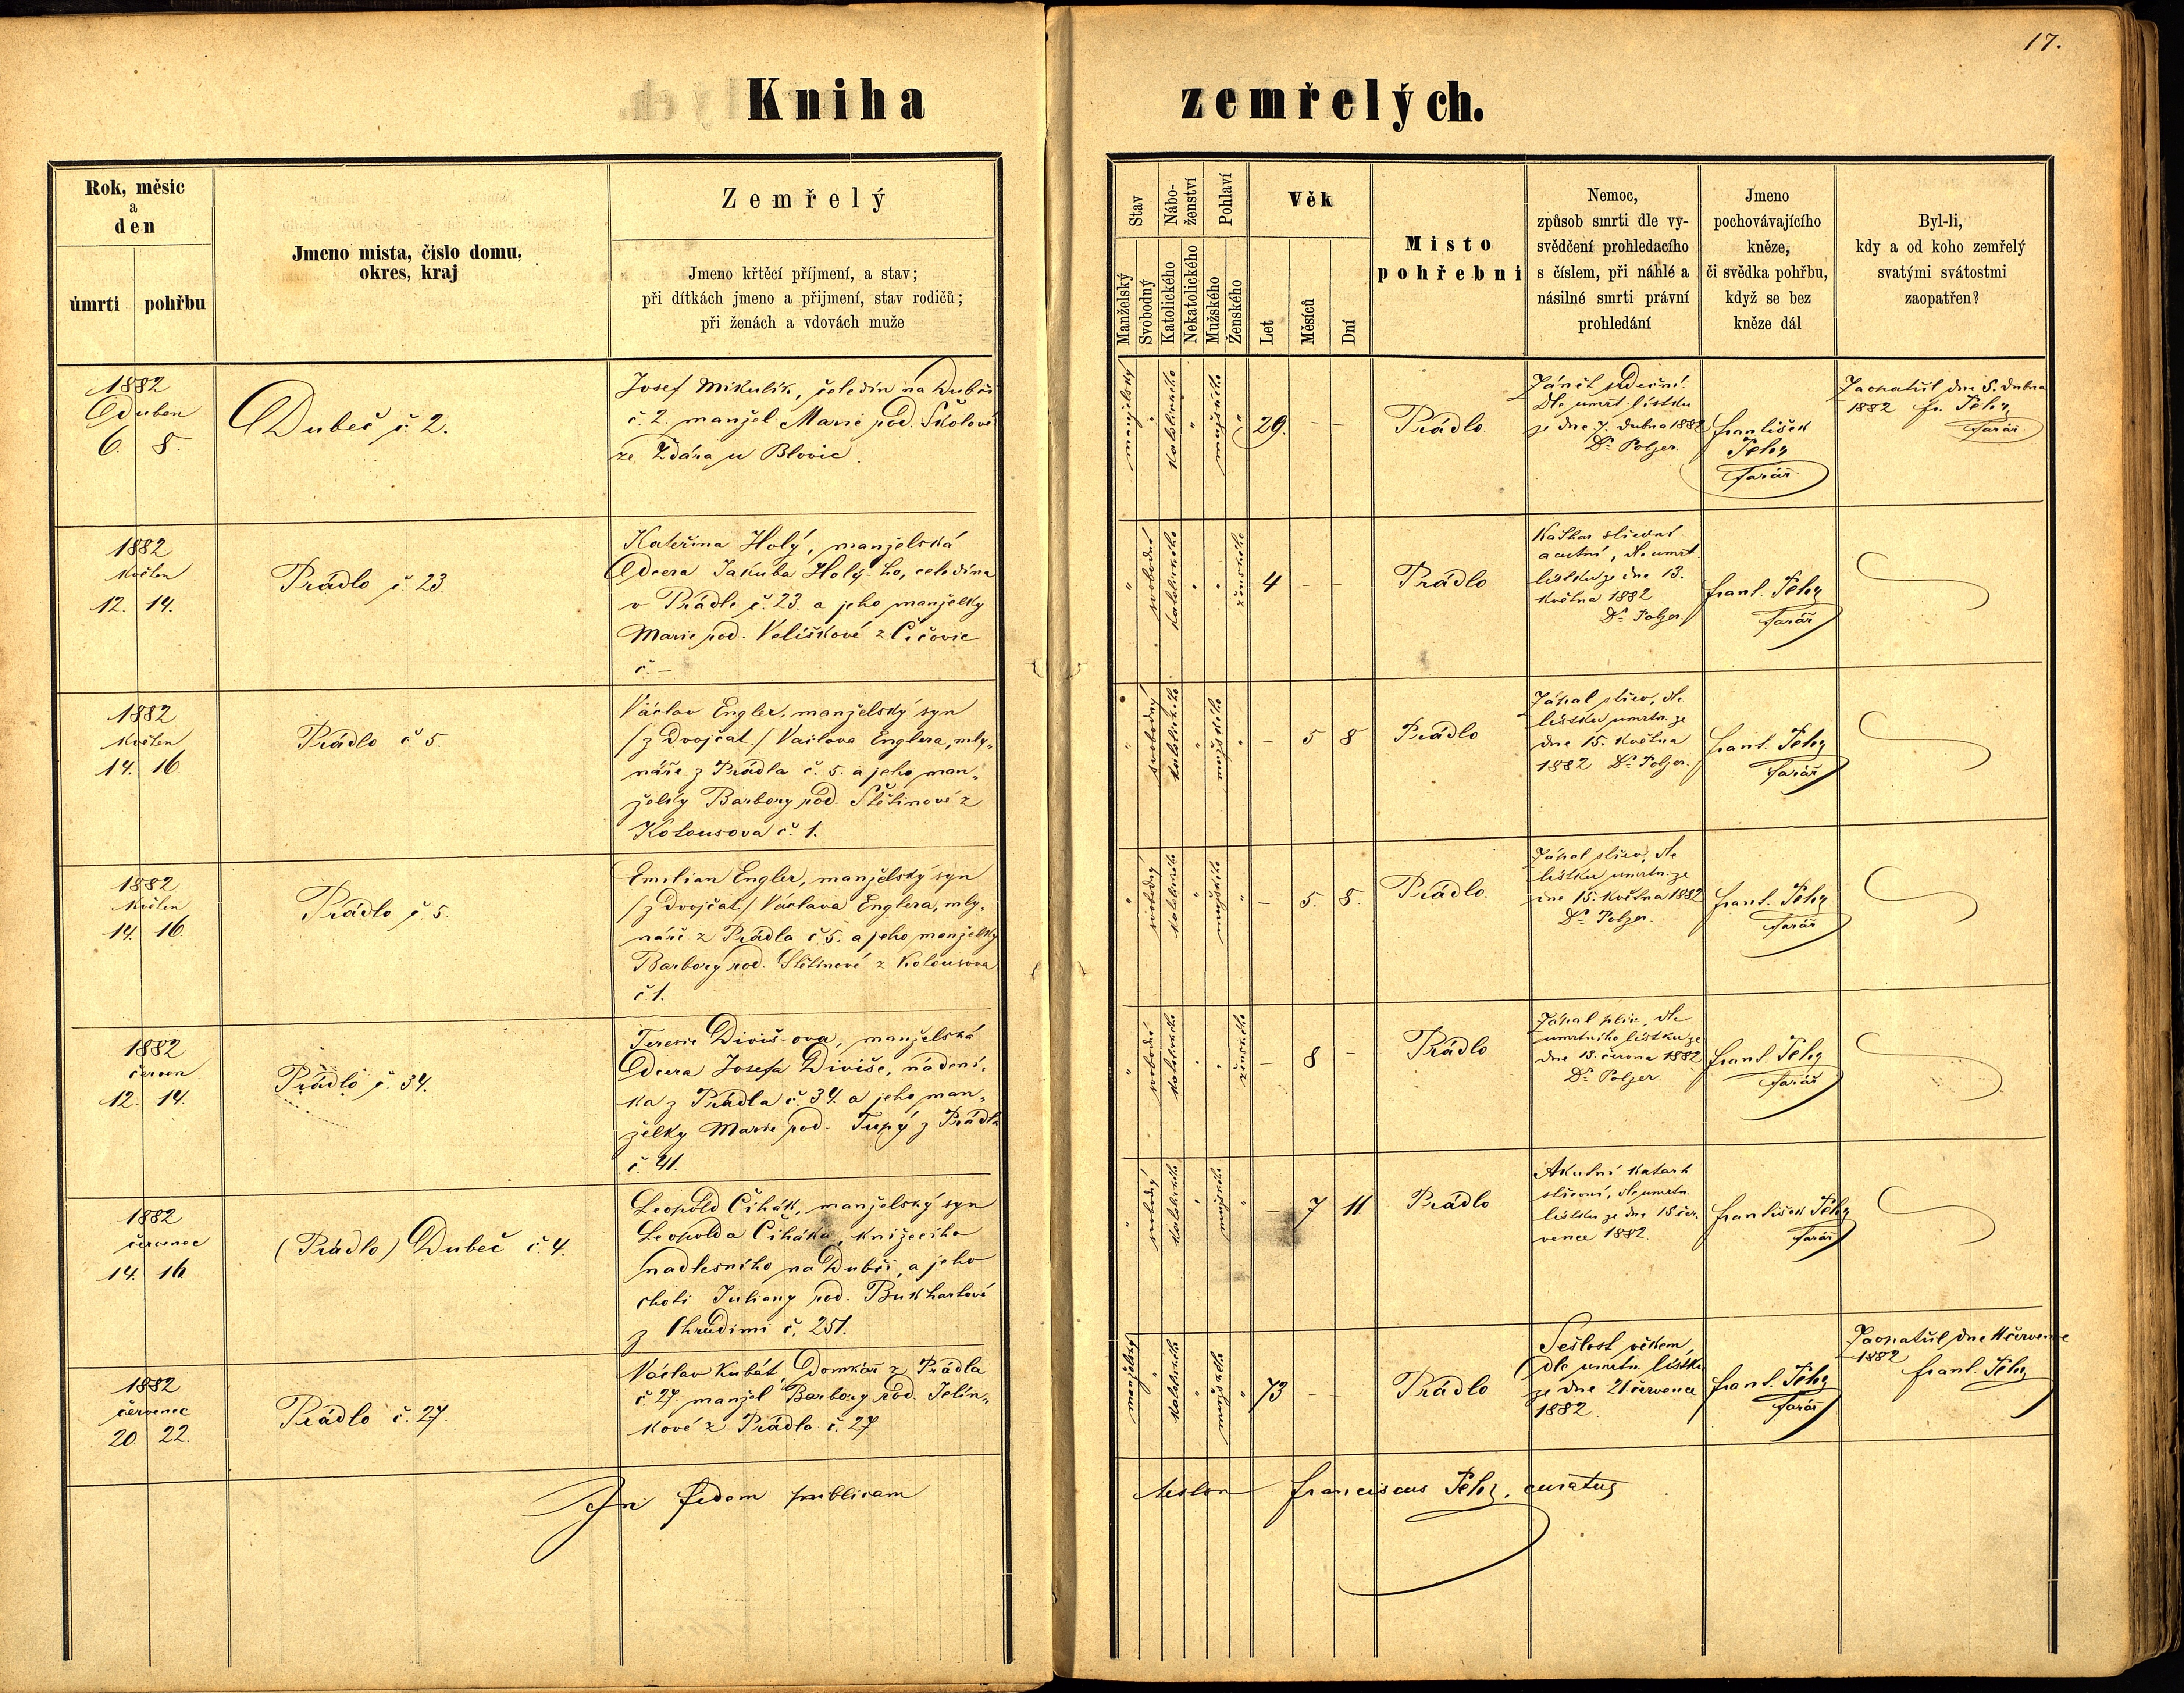 17.
Kniha zemřelých.
Rok, měsic
a
den
úmrtí
pohřbu
Jmeno mista, číslo domu,
okres, kraj
Zemřelý
Jmeno křtěcí příjmení, a stav;
při dítkách jmeno a přijmení, stav rodičů;
při ženách a vdovách muže
Stav
Manželský
Svobodný
Nábo-
ženství
Katolického
Nekatolického
Pohlaví
Mužského
Ženského
Věk
Let
Měsíců
Dní
Misto
pohřebni
Nemoc,
způsob smrti dle vy-
svědčení prohledacího
s číslem, při náhlé a
násilné smrti právní
prohledání
Jmeno
pochovávajícího
kněze,
či svědka pohřbu,
když se bez
kněze dál
Byl-li,
kdy a od koho zemřelý
svatými svátostmi
zaopatřen?
1882
Duben
6. 8.
Dubeč č. 2.
Josef Mikulík, čeledín na Dubči
č. 2. manžel Marie rod.
ze Ždára u Blovic.
manželský
"
katolického
"
mužského
"
29. - -
Prádlo.
Zánět srdeční.
Dle umrt. lístku
ze dne 7. dubna 1882
Dr. Polzer.
František
farář
Zaopatřil dne 5. dubna
1882 fr.
farář
1882
Květen
12. 14.
Prádlo č. 23.
Kateřina Holý, manželská
dcera Jakuba Holý-ho, čeledína
v Prádle č. 23. a jeho manželky
Marie rod. Velíškové z Čičovic
č. -
"
svobodná
katolického
"
"
ženského
4 - -
Prádlo
Kathar střevní
acutní, dle umrt.
lístku ze dne 13.
Května 1882
Dr. Polzer.
frant.
farář
1882
Květen
14. 16.
Prádlo č. 5.
Václav Engler, manželský syn
/z dvojčat/ Václava Englera, mly-
náře z Prádla č. 5. a jeho man-
želky Barbory rod. Štětinové z
Kotousova č. 1.
"
svobodný
katolického
"
mužského
"
- 5 8
Prádlo
Zápal střev, dle
lístku umrtn. ze
dne 15. Května
1882 Dr. Polzer.
frant.
farář
1882
Květen
14. 16.
Prádlo č. 5.
Emilian Engler, manželský syn
/z dvojčat/ Václava Englera, mly-
náře z Prádla č. 5. a jeho manželky
Barbory rod. Štětinové z Kotousova
č. 1.
"
svobodný
katolického
"
mužského
"
- 5. 8.
Prádlo.
Zápal střev, dle
lístku umrtn. ze
dne 15. Května 1882
Dr. Polzer.
frant.
farář
1882
červen
12. 14.
Prádlo č. 34.
Terezie Diviš-ova, manželská
dcera Josefa Diviše, nádení-
ka z Prádla č. 34. a jeho man-
želky Marie rod. Tupý z Prádla
č. 41.
"
svobodná
katolického
"
"
ženského
- 8 -
Prádlo
Zápal plic, dle
umrtního lístku ze
dne 13. června 1882
Dr. Polzer.
frant.
farář
1882
červenec
14. 16
(Prádlo) Dubeč č. 4.
Leopold Čihák, manželský syn
Leopolda Čiháka, knížecího
nadlesního na Dubči, a jeho
choti Juliany rod. Bukhartové
z Chrudimi č. 251.
"
svobodný
katolického
"
mužského
"
- 7 11
Prádlo
Akutní katarh
střevní, dle umrtn.
lístku ze dne 15. čer-
vence 1882.
František
farář
1882
červenec
20 22.
Prádlo č. 27.
Václav Kubát, Domkář z Prádla
č. 27 manžel Barbory rod. Jelín-
kové z Prádla č. 27
manželský
"
katolického
"
mužského
"
73 - -
Prádlo
Sešlost věkem,
dle umrtn. lístku
ze dne 21. července
1882.
frant.
farář
Zaopatřil dne 11 července
1882
frant.
In fidem publicam
testor Franciscus curatus